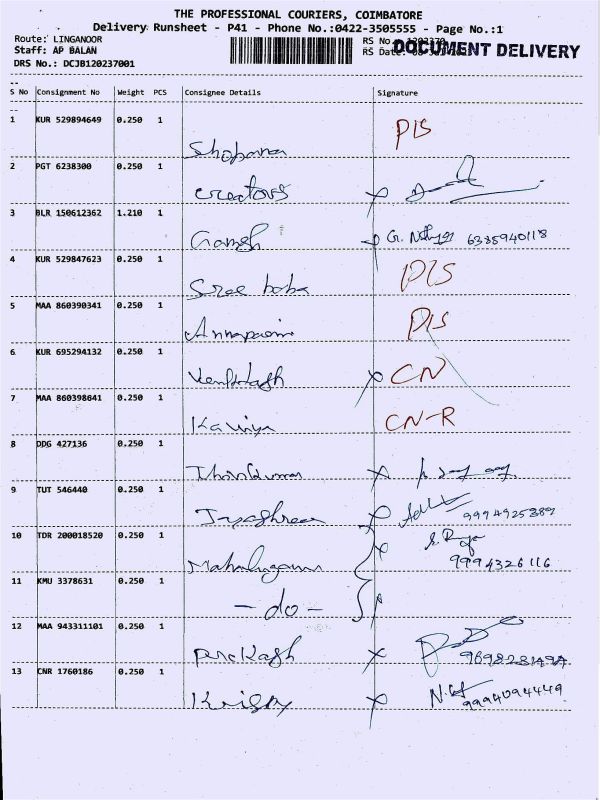 THE PROFESSIONAL COURIERS, COIMBATORE
Delivery Runsheet - P41 - Phone No.:0422-3505555 - Page No.:1
Route: LINGANOOR RS No.
Staff: AP BALAN RS Date: DOCUMENT DELIVERY
DRS No.: DCJB120237001
S No Consignment No Weight PCS Consignee Details Signature
1 KUR 529894649 0.250 1 Shobana PIS
2 PGT 6238300 0.250 1 Creators
3 BLR 150612362 1.210 1 Ganesh G. 6385940118
4 KUR 529847623 0.250 1 Sree baba PIS
5 MAA 860390341 0.250 1 PIS
6 KUR 695294132 0.250 1 Venkatesh CN
7 MAA 860398641 0.250 1 Kaviya CN-R
8 DDG 427136 0.250 1
9 TUT 546440 0.250 1 Jayashree 9994925382
10 TDR 200018520 0.250 1 Mahalingam 9994326116
11 KMU 3378631 0.250 1 -do-
12 MAA 943311101 0.250 1 Prakash
13 CNR 1760186 0.250 1 9994094449